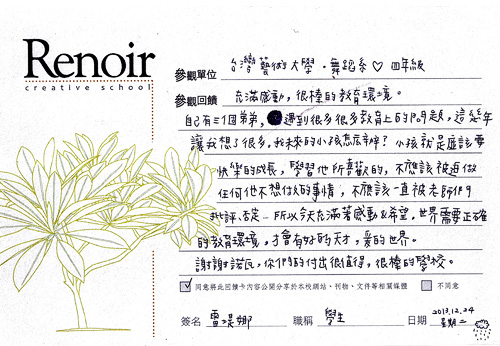 Renoir
creative school
參觀單位 台灣藝術大學·舞蹈系♡ 四年級
參觀回饋 充滿感動,很棒的教育環境。
自己有三個弟弟,遇到很多很多教育上的問題,這些年
讓我想了很多,我未來的小孩怎麼辦?小孩就是應該要
快樂的成長,學習他所喜歡的,不應該被逼做
任何他不想做的事情,不應該一直被老師們
批評、否定…所以今天充滿著感動&希望。世界需要正確
的教育環境,才會有好的天才,愛的世界。
謝謝諾瓦,你們的付出很值得,很棒的學校。
☑ 同意將此回饋卡內容公開分享於本校網站、刊物、文件等相關媒體 □ 不同意
簽名 雷 娜 職稱 學生 日期 2013.12.24
星期二